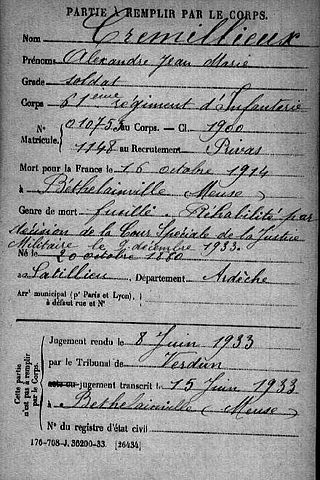 PARTIE À REMPLIR PAR LE CORPS.
Nom Cremillieux
Prénoms Alexandre Jean Marie
Grade Soldat
Corps 61ème régiment d'Infanterie
N° 01075 au Corps. — Cl. 1900
Matricule. 1148 au Recrutement Privas
Mort pour la France le 16 octobre 1914
à Béthelainville Meuse
Genre de mort fusillé. Réhabilité par
décision de la Cour Spéciale de la Justice
Militaire le 2 décembre 1933.
Né le 20 octobre 1880
à Satillieu Département Ardèche
Arr' municipal (p' Paris et Lyon),
à défaut rue et N°
Cette partie n'est pas à remplir par le Corps.
Jugement rendu le 8 Juin 1933
par le Tribunal de Verdun
acte ou jugement transcrit le 15 Juin 1933
à Béthelainville (Meuse)
N° du registre d'état civil
176-708-J. 36200-33. [26434]